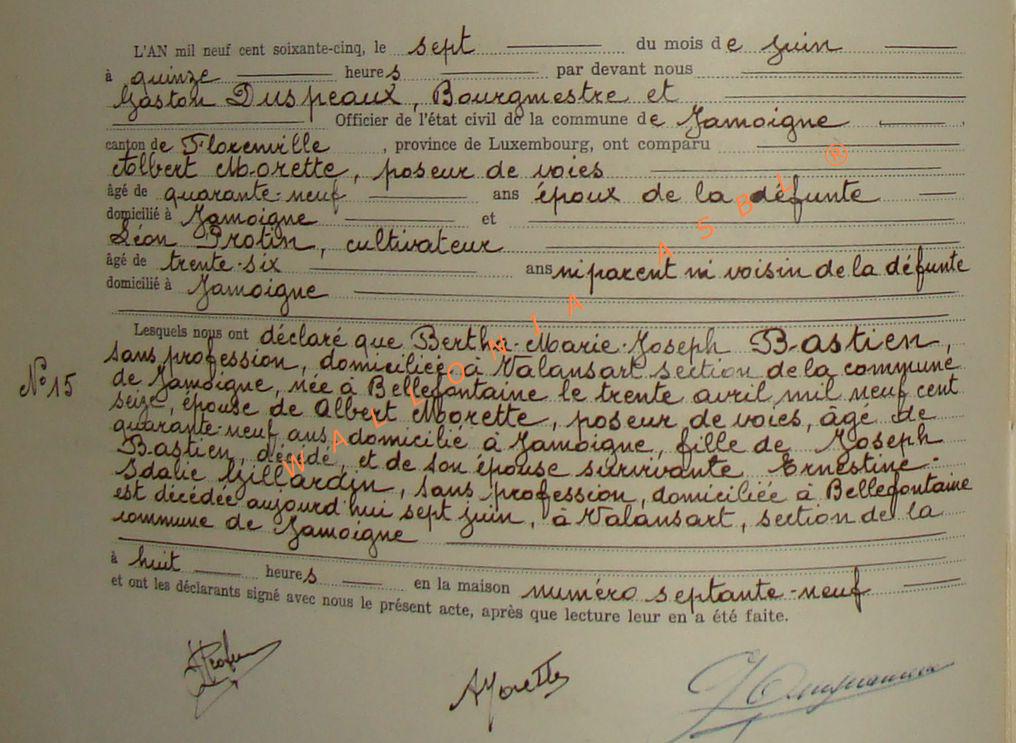 L'AN mil neuf cent soixante-cinq, le sept du mois de juin
à quinze heures par devant nous
Gaston Duspeaux, Bourgmestre et
Officier de l'état civil de la commune de Jamoigne,
canton de Florenville, province de Luxembourg, ont comparu
Albert Morette, poseur de voies
âgé de quarante-neuf ans époux de la défunte
domicilié à Jamoigne et
Léon Protin, cultivateur
âgé de trente-six ans ni parent ni voisin de la défunte
domicilié à Jamoigne
Lesquels nous ont déclaré que Berthe-Marie-Joseph Bastien,
N° 15
sans profession, domiciliée à Valansart section de la commune
de Jamoigne, née à Bellefontaine le trente avril mil neuf cent
seize, épouse de Albert Morette, poseur de voies, âgé de
quarante-neuf ans domicilié à Jamoigne, fille de Joseph
Bastien, décédé, et de son épouse survivante Ernestine-
Idalie Gillardin, sans profession, domiciliée à Bellefontaine
est décédée aujourd'hui sept juin, à Valansart, section de la
commune de Jamoigne
à huit heures en la maison numéro septante-neuf
et ont les déclarants signé avec nous le présent acte, après que lecture leur en a été faite.
AMorette
WALLONIA ASBL ®